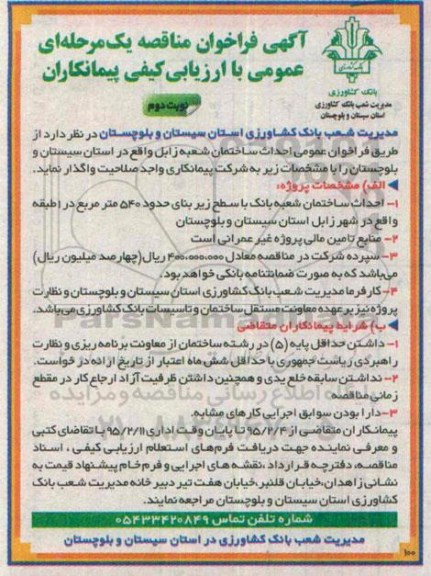 آگهی فراخوان مناقصه یک‌مرحله‌ای
عمومی با ارزیابی کیفی پیمانکاران
نوبت دوم
بانک کشاورزی
مدیریت شعب بانک کشاورزی
استان سیستان و بلوچستان
مدیریت شعب بانک کشاورزی استان سیستان و بلوچستان در نظر دارد از
طریق فراخوان عمومی احداث ساختمان شعبه زابل واقع در استان سیستان و
بلوچستان را با مشخصات زیر به شرکت پیمانکاری واجد صلاحیت واگذار نماید.
الف) مشخصات پروژه:
۱- احداث ساختمان شعبه بانک با سطح زیر بنای حدود ۵۴۰ متر مربع در ۱ طبقه
واقع در شهر زابل استان سیستان و بلوچستان
۲- منابع تامین مالی پروژه غیر عمرانی است
۳- سپرده شرکت در مناقصه معادل ۴۰۰،۰۰۰،۰۰۰ ریال (چهارصد میلیون ریال)
می‌باشد که به صورت ضمانتنامه بانکی خواهد بود.
۴- کارفرما مدیریت شعب بانک کشاورزی استان سیستان و بلوچستان و نظارت
پروژه نیز بر عهده معاونت مستقل ساختمان و تاسیسات بانک کشاورزی می‌باشد.
ب) شرایط پیمانکاران متقاضی
۱- داشتن حداقل پایه (۵) در رشته ساختمان از معاونت برنامه ریزی و نظارت
راهبردی ریاست جمهوری با حداقل شش ماه اعتبار از تاریخ ارائه درخواست.
۲- نداشتن سابقه خلع یدی و همچنین داشتن ظرفیت آزاد ارجاع کار در مقطع
زمانی مناقصه
۳- دارا بودن سوابق اجرایی کارهای مشابه.
پیمانکاران متقاضی از ۹۵/۲/۴ تا پایان وقت اداری ۹۵/۲/۱۱ با تقاضای کتبی
و معرفی نماینده جهت دریافت فرم‌های استعلام ارزیابی کیفی ، اسناد
مناقصه، دفترچه قرارداد ،نقشه های اجرایی و فرم خام پیشنهاد قیمت به
نشانی زاهدان،خیابان قلنبر،خیابان هفت تیر دبیرخانه مدیریت شعب بانک
کشاورزی استان سیستان و بلوچستان مراجعه نمایند.
شماره تلفن تماس ۰۵۴۳۳۴۲۰۸۴۹
مدیریت شعب بانک کشاورزی در استان سیستان و بلوچستان
۱۰۰